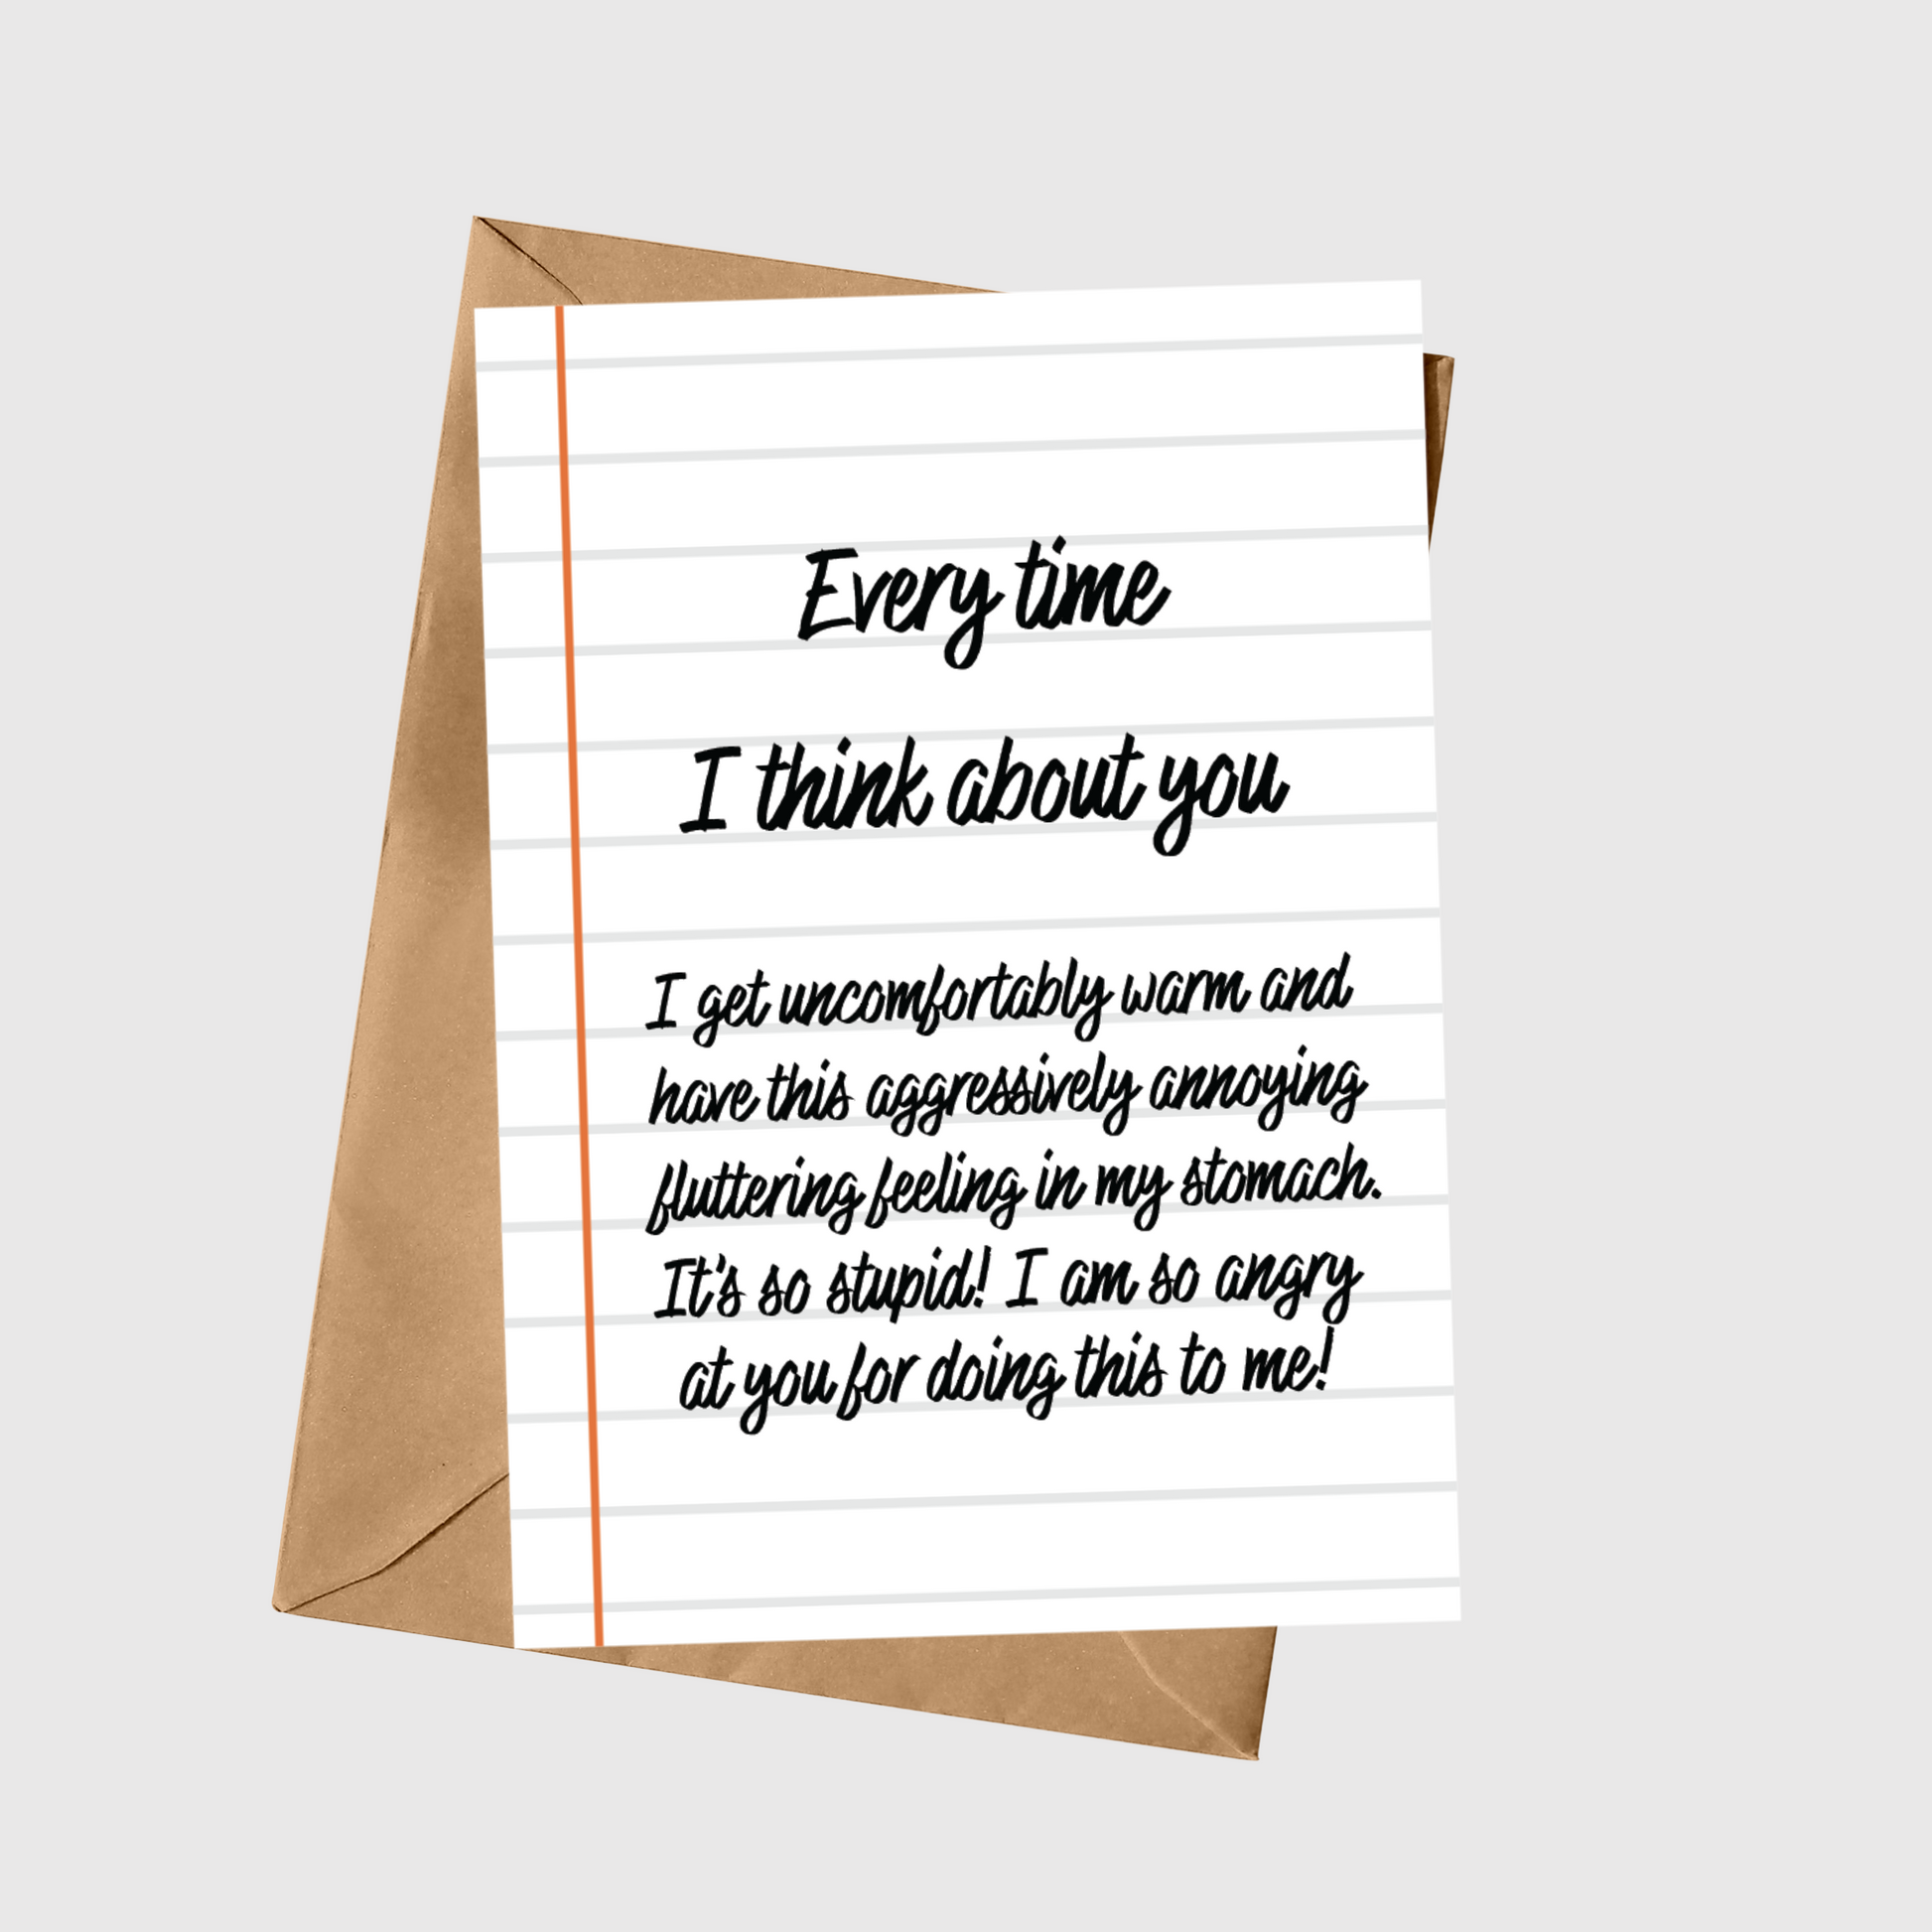 Every time
I think about you
I get uncomfortably warm and
have this aggressively annoying
fluttering feeling in my stomach.
It's so stupid! I am so angry
at you for doing this to me!